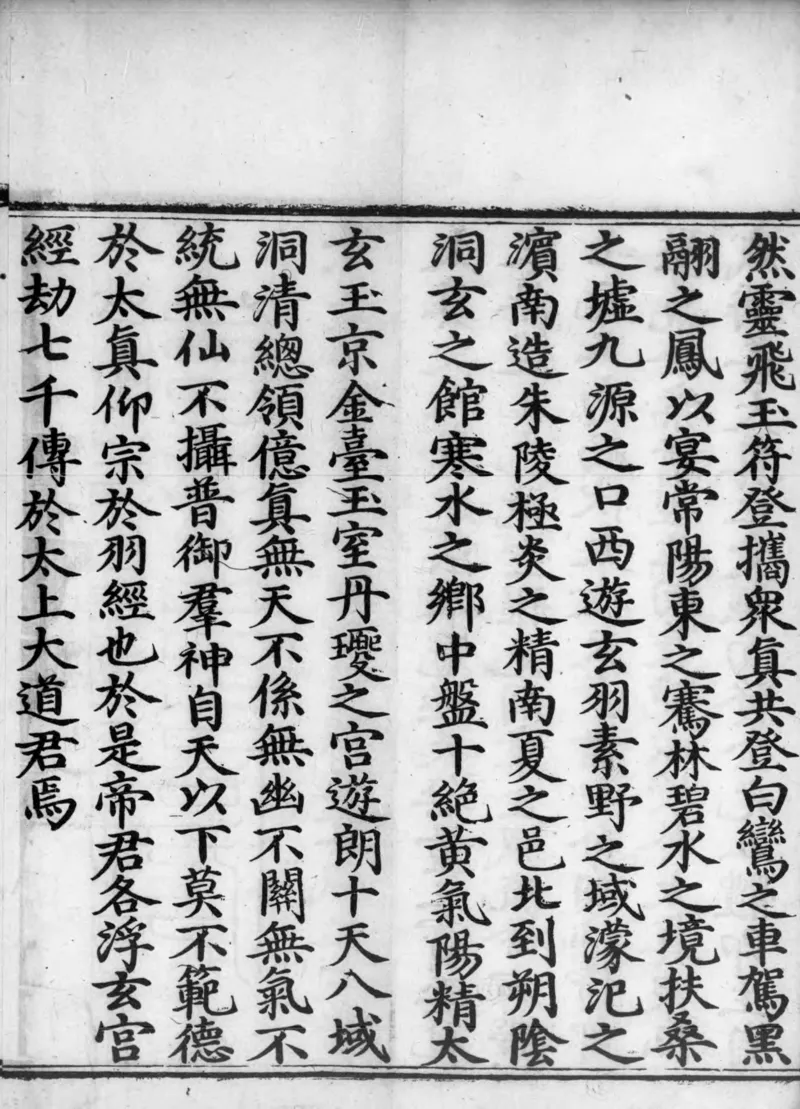 然靈飛玉符登攜衆眞共登白鸞之車駕黑
翮之鳳以宴常陽東之騫林碧水之境扶桑
之墟九源之口西遊玄羽素野之域濛汜之
濵南造朱陵極炎之精南夏之邑北到朔陰
洞玄之館寒水之鄉中盤十絶黄氣陽精太
玄玉京金臺玉室丹瓊之宮遊朗十天八域
洞清總領億眞無天不係無幽不關無氣不
統無仙不攝普御羣神自天以下莫不範德
於太眞仰宗於羽經也於是帝君各浮玄宮
經劫七千傳於太上大道君焉